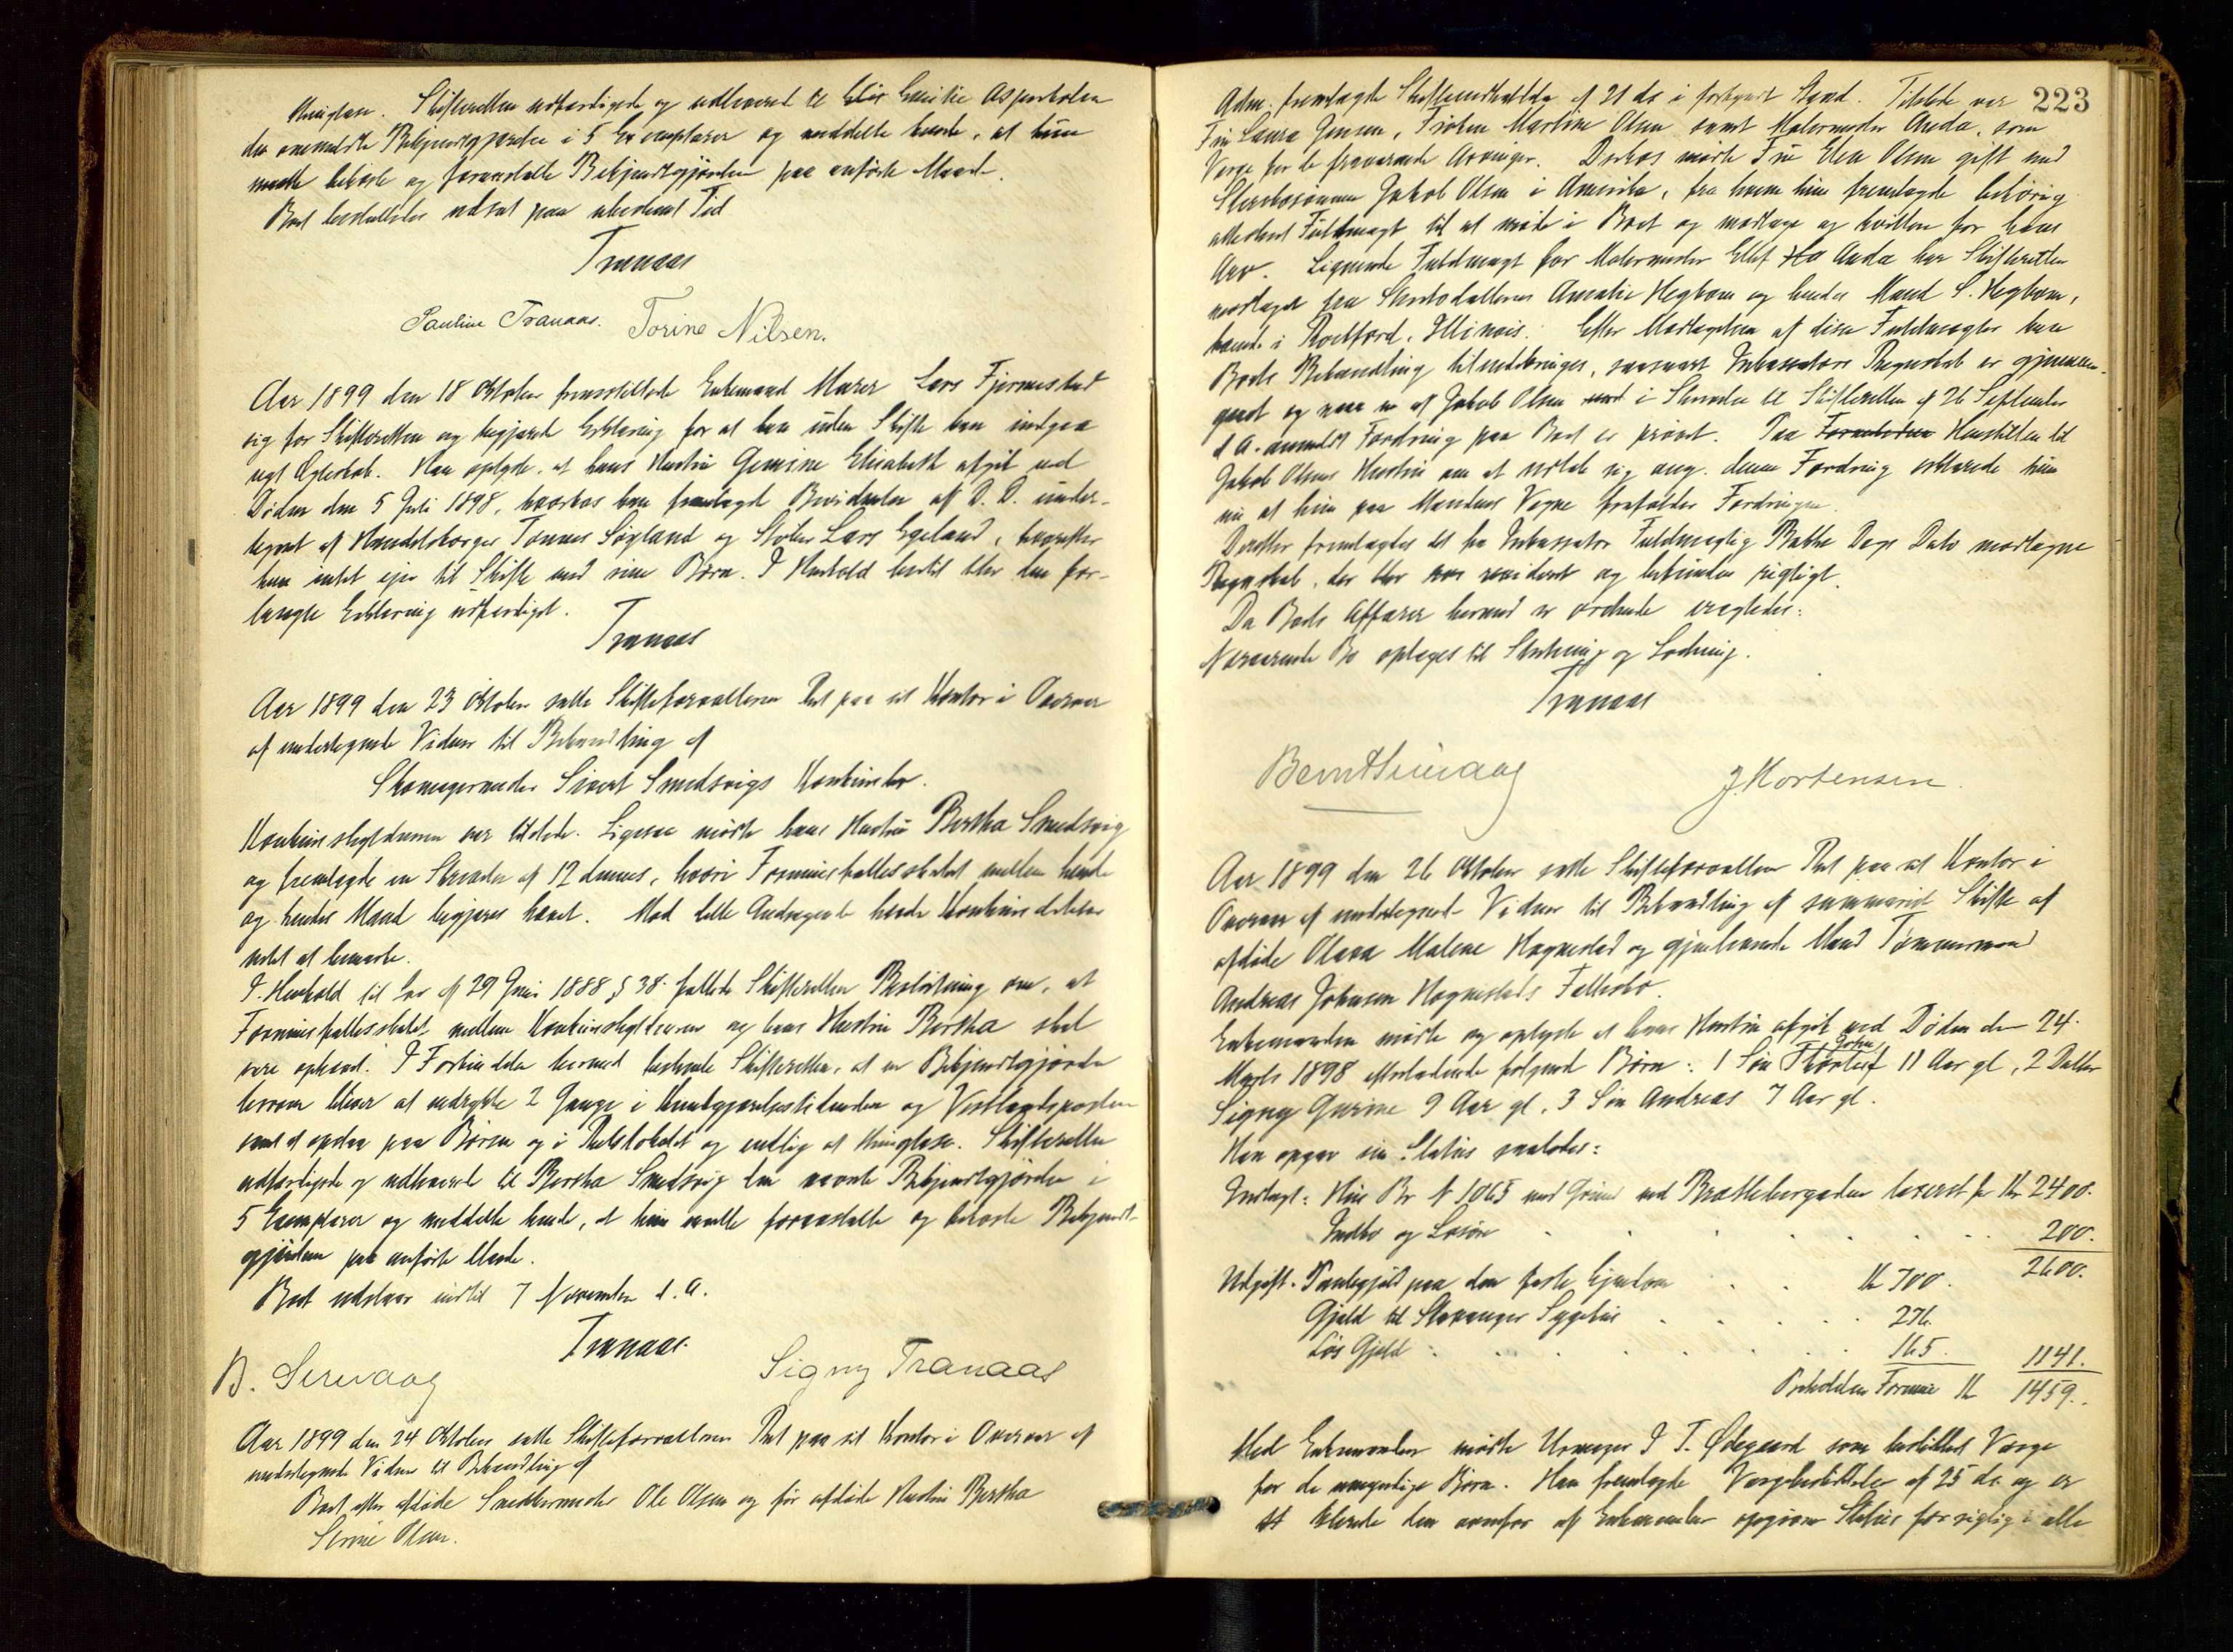 thinglæse. Skifteretten udfærdigede og udleverede til Emilie Aspenholm
den ommeldte Bekjendtgjørelse i 5 Exemplarer og meddelte hende, at hun
maatte bekoste og foranstalte Bekjendtgjørelsen paa anførte Maade.
Boet henstilledes udsat paa ubestemt Tid
Tranaas
Pauline Tranaas. Torine Nilsen.
Aar 1899 den 18 Oktober fremstillede Enkemand Murer Lars Fjermestad
sig for Skifteretten og begjærede Erklæring for at han uden Skifte kan indgaa
nyt Ægteskab. Han oplyste, at hans Hustru Gurine Elisabeth afgik ved
Døden den 5 Juli 1898, hvorhos han fremlagde Bevidnelse af D. D. under-
tegnet af Handelsborger Tønnes Søyland og Lars Egeland, hvorefter
han intet ejer til Skifte med sine Børn. I Henhold hertil blev den for-
langte Erklæring udfærdiget.
Tranaas
Aar 1899 den 23 Oktober satte Skifteforvalteren Ret paa sit Kontor i Overvær
af undertegnede Vidner til Behandling af
Skomagermester Sivert Smedsvigs Konkursbo.
Konkursskyldneren var tilstede. Ligesaa mødte hans Hustru Bertha Smedsvig
og fremlagde en Skrivelse af 12 dennes, hvori Formuesfællesskabet mellem hende
og hendes Mand begjæres hævet. Mod dette Andragende havde Konkursdebitor
intet at bemærke.
I Henhold til Lov af 29 Juni 1888 § 38 fattede Skifteretten Beslutning om, at
Formuesfællesskabet mellem Konkursskyldneren og hans Hustru Bertha skal
være ophævet. I Forbindelse hermed bestemte Skifteretten, at en Bekjendtgjørelse
herom bliver at indrykke 2 Gange i Kundgjørelsestidenden og Vestlandsposten
samt at opslaa paa Børsen og i Retslokalet og endelig at thinglæse. Skifteretten
udfærdigede og udleverede til Bertha Smedsvig den nævnte Bekjendtgjørelse i
5 Exemplarer og meddelte hende, at hun maatte foranstalte og bekoste Bekjendt-
gjørelsen paa anførte Maade.
Boet udstaar indtil 7 November d. A.
Tranaas.
B. Servaag Signy Tranaas
Aar 1899 den 24 Oktober satte Skifteforvalteren Ret paa sit Kontor i Overvær af
undertegnede Vidner til Behandling af
Boet efter afdøde Snedkermester Ole Olsen og før afdøde Hustru Bertha
Serine Olsen.
223
Adm. fremlagde Skifteindkaldelse af 21 ds i forkyndt Stand. Tilstede var
Fru Laura Jensen, Frøken Martine Olsen samt Malermester Anda, som
Værge for de fraværende Arvinger. Derhos mødte Fru Elen Olsen gift med
Sterbosønnen Jakob Olsen i Amerika, fra hvem hun fremlagde behørig
attesteret Fuldmagt til at møde i Boet og modtage og kvittere for hans
Arv. Lignende Fuldmagt for Malermester Ellef Anda har Skifteretten
modtaget fra Sterbodatteren Amalie Hegbom og hendes Mand S. Hegbom,
boende i Rockford, Illinois. Efter Modtagelsen af disse Fuldmagter kan
Boets Behandling tilendebringes, saasnart Inkassators Regnskab er gjennem-
gaaet og naar en af Jakob Olsen i Skrivelse til Skifteretten af 26 September
d A. anmeldt Fordring paa Boet er prøvet. Paa Henstillen til
Jakob Olsens Hustru om at udtale sig ang. denne Fordring erklærede hun
nu at hun paa Mandens Vegne frafalder Fordringen.
Derefter fremlagdes det fra Inkassator Fuldmægtig Bakke Dags Dato modtagne
Regnskab, der blev revideret og befundet rigtigt.
Da Boets Affærer hermed er ordnede eragtedes:
Nærværende Bo optages til Slutning og Lodning.
Tranaas
Bernt Servaag J. Mortensen.
Aar 1899 den 26 Oktober satte Skifteforvalteren Ret paa sit Kontor i
Overvær af undertegnede Vidner til Behandling af summarisk Skifte af
afdøde Olava Malene Hognestad og gjenlevende Mand Tømmermand
Andreas Johnsen Hognestads Fællesbo.
Enkemanden mødte og oplyste at hans Hustru afgik ved Døden den 24.
Marts 1898 efterladende følgende Børn: 1 Søn John Thorleif 11 Aar gl, 2 Datter
Signy Gurine 9 Aar gl. 3 Søn Andreas 7 Aar gl.
Han opgav sin Status saaledes:
Indtægt: Hus Br N 1065 med Grund ved Brattebergaden taxeret for Kr 2400.
Indbo og Løsøre 200.
2600.
Udgift. Pantegjæld paa den faste Ejendom Kr 700.
Gjæld til Stavanger Sygehus 276.
Løs Gjæld 165. 1141.
Beholden Formue Kr 1459.
Med Enkemanden mødte Urmager T. Ødegaard som beskikket Værge
for de umyndige Børn. Han fremlagde Værgebeskikkelse af 25 ds. og er-
klærede den ovenfor af Enkemanden opgivne Status for rigtig i alle